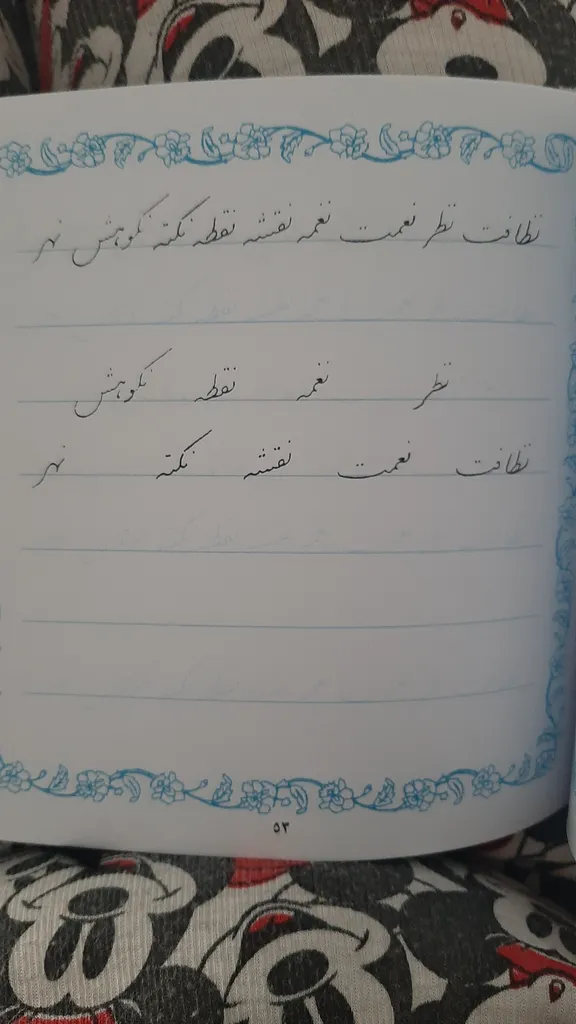 نظافت نظر نعمت نغمه نقشه نقطه نکته نکوهش نهر
نظر نغمه نقطه نکوهش
نظافت نعمت نقشه نکته نهر
۵۳